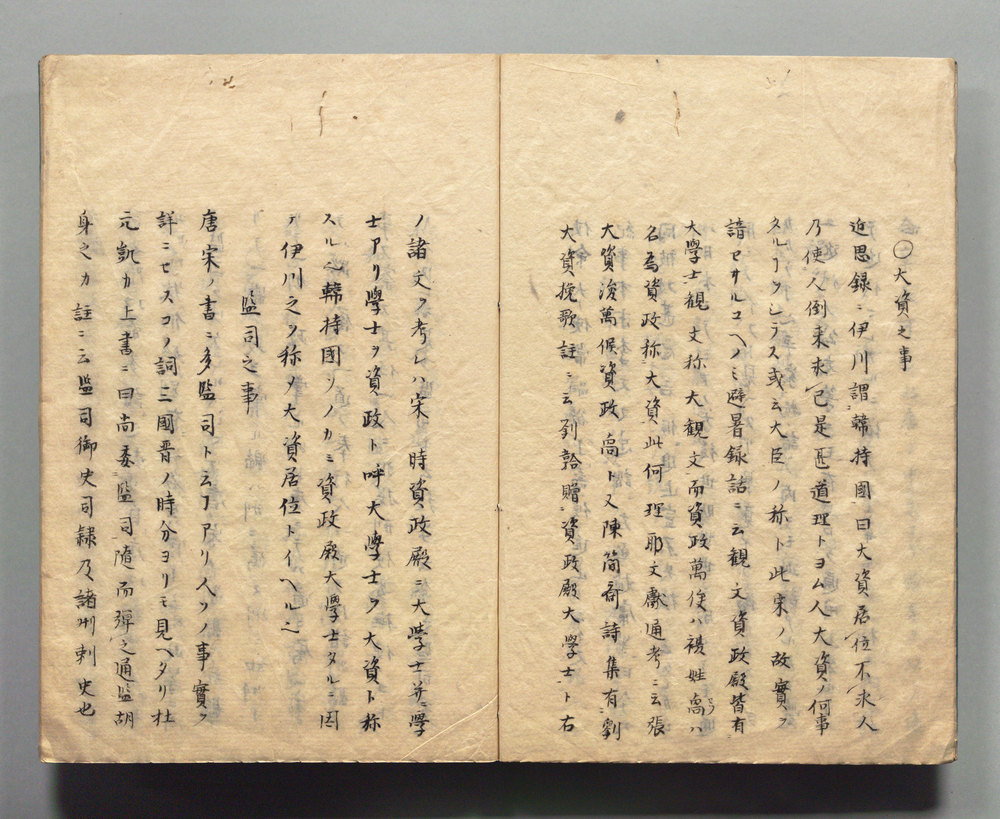 ㊀大資之事
近思録ニ伊川謂韓持國曰大資居位不求人
乃使人倒来求己是甚道理トヨム人大資ノ何事
タルヿヲシラス或云大臣ノ称ト此宋ノ故實ヲ
諳セサルユヘノミ避暑録話ニ云観文資政殿皆有
大學士観文称大観文而資政萬俟ハ複姓卨ハ
名為資政称大資此何理耶文獻通考ニ云張
大資浚萬俟資政卨ト又陳簡斎詩集有劉
大資挽歌註ニ云劉韐贈資政殿大学士ト右
ノ諸文ヲ考レハ宋時資政殿ニ大学士并ニ學
士アリ學士ヲ資政ト呼大學士ヲ大資ト称
スル也韓持國ソノカミ資政殿大學士タルニ因
テ伊川之ヲ称メ大資居位トイヘル也
監司之事
唐宋ノ書ニ多監司ト云ヿアリ人ソノ事實ヲ
詳ニセスコノ詞三國晋ノ時分ヨリミ見ヘタリ杜
元凱カ上書ニ曰尚委監司隨而彈之通鑑胡
身之カ註ニ云監司御史司隷及諸州刺史也